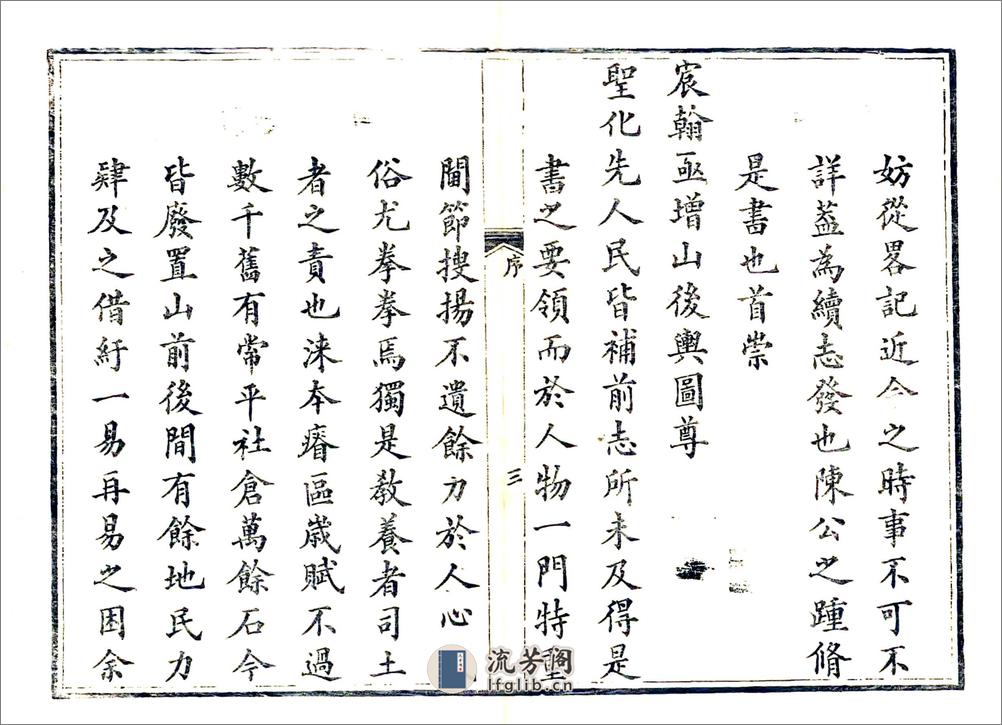 妨從畧記近今之時事不可不
詳葢為續志發也陳公之踵脩
是書也首崇
宸翰亟增山後輿圖尊
聖化先人民皆補前志所未及得是
書之要領而於人物一門特重
序
三
閫節搜揚不遺餘力於人心
俗尤拳拳焉獨是敎養者司土
者之責也涞本瘠區歲賦不過
數千舊有常平社倉萬餘石今
皆廢置山前後間有餘地民力
肄及之借紆一易再易之困余
流芳閣
lfglib.cn